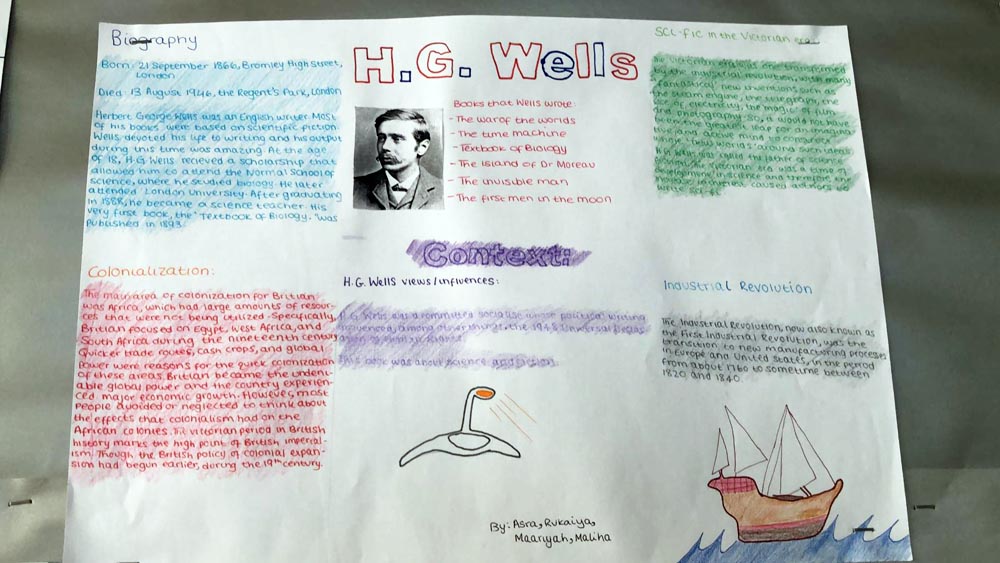 Biography
Born: 21 September 1866, Bromley High Street,
London
Died: 13 August 1946, the Regent's Park, London
Herbert George Wells was an English writer. Most
of his books were based on scientific fiction.
Wells devoted his life to writing and his output
during this time was amazing. At the age
of 18, H.G Wells recieved a scholarship that
allowed him to attend the Normal School of
science, where he studied biology. He later
attended London University. After graduating
in 1888, he became a science teacher. His
very first book, the "Textbook of Biology," was
published in 1893.
H.G. Wells
Books that Wells wrote:
- The war of the worlds
- The time machine
- Textbook of Biology
- The Island of Dr Moreau
- The invisible man
- The first men in the moon
Sci-fic in the Victorian era
The Victorian era was transformed
by the industrial revolution, with many
fantastical new inventions such as
the steam engine, the telegraph, the
use of electricity, the
and photography. So, it would not have
H.G Wells was called the father of science
fiction. The Victorian era was a time of
development in science and therefore
caused authors to
write
Context:
H.G. Wells views/influences:
H.G. Wells was a committed socialist whose political writing
influenced, among other things, the 1948 Universal
This book was about science and fiction.
Colonialization:
The main area of colonization for Britian
was Africa, which had large amounts of resour-
ces that were not being utilized. Specifically,
Britian focused on Egypt, West Africa, and
South Africa during the nineteenth century.
Quicker trade routes, cash crops, and global
Power were reasons for the quick colonization
of these areas. Britian became the undeni-
able global power and the country experien-
ced major economic growth. However, most
people avoided or neglected to think about
the effects that colonialism had on the
African colonies. The victorian period in British
history marks the high point of British imperial-
ism. Though the British policy of colonial expan-
sion had begun earlier, during the 19th century.
Industrial Revolution
The Industrial Revolution, now also known as
the First Industrial Revolution, was the
transition to new manufacturing processes
in Europe and United States, in the period
from about 1760 to sometime between
1820 and 1840.
By: Asra, Rukaiya,
Maariyah, Maliha